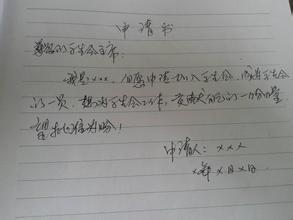 申请书
尊敬的学生会主席:
我是xxx,但愿申请加入学生会,成为学生会
的一员,想为学生会工作,贡献自己的一份力量,
望批准为盼!
申请人:xxx
x年x月x日